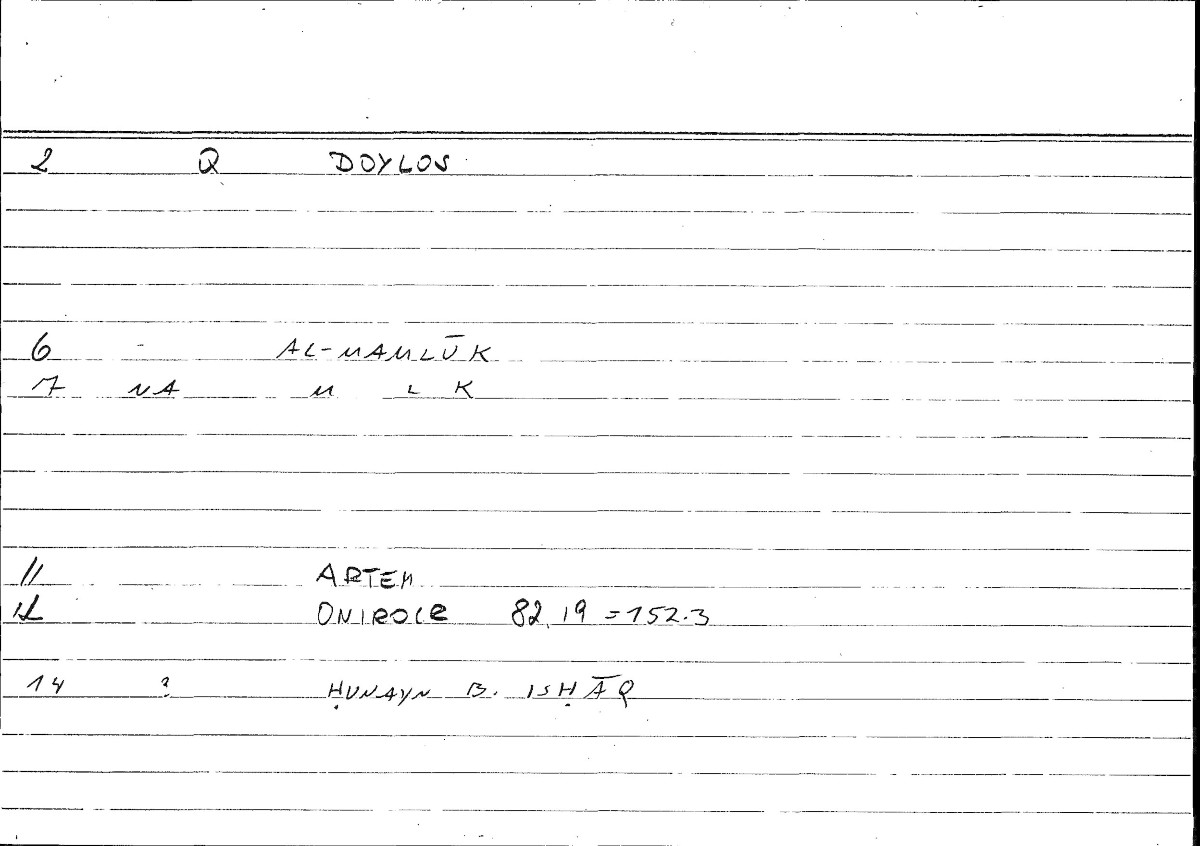 2 Q DOYLOS
6 - AL-MAMLŪK
7 NA M L K
11 ARTEM
12 ONIROCR 82.19 = 152.3
14 ? ḤUNAYN B. ISḤĀQ